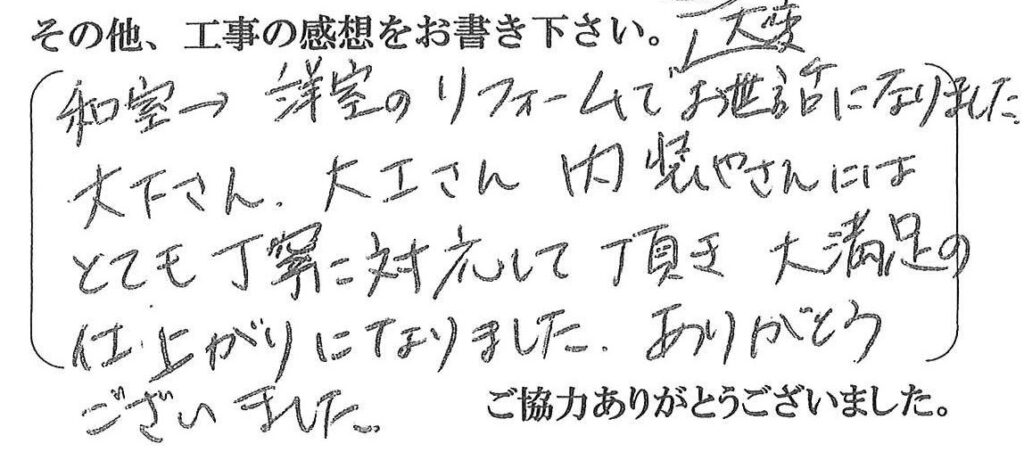 その他、工事の感想をお書き下さい。
和室→洋室のリフォームで大変お世話になりました
大下さん、大工さん 内装やさんには
とても丁寧に対応して頂き 大満足の
仕上がりになりました。ありがとう
ございました。
ご協力ありがとうございました。